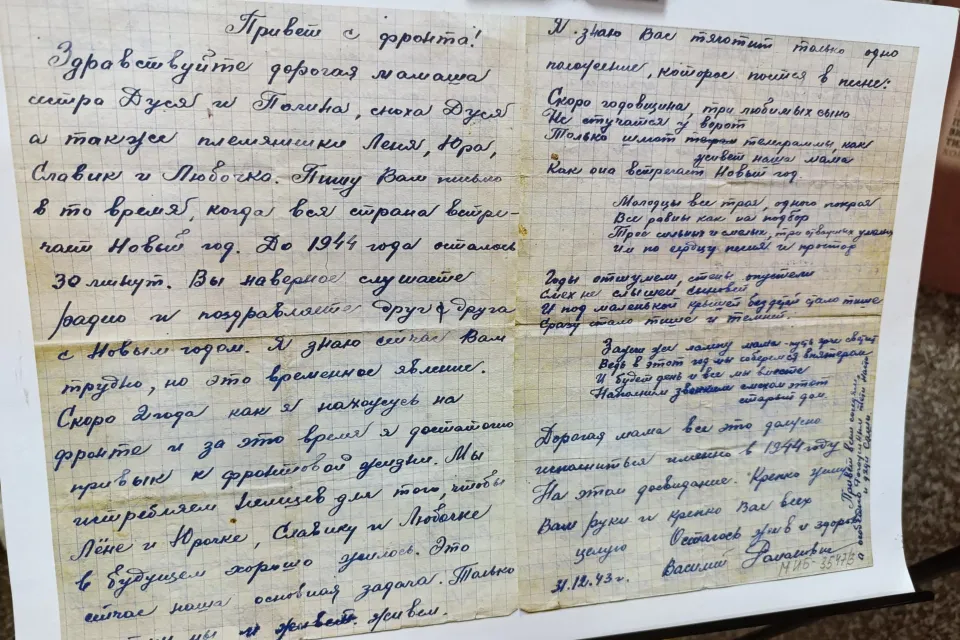 Привет с фронта!
Здравствуйте дорогая мамаша
сестра Дуся и Полина, сноха Дуся
а также племянники Лёня, Юра,
Славик и Любочка. Пишу Вам письмо
в то время, когда вся страна встре-
чает Новый год. До 1944 года осталось
30 минут. Вы наверное слушаете
радио и поздравляете друг друга
с Новым годом. Я знаю сейчас Вам
трудно, но это временное явление.
Скоро 2 года как я нахожусь на
фронте и за это время я достаточно
привык к фронтовой жизни. Мы
истребляем немцев для того, чтобы
Лёне и Юрочке, Славику и Любочке
в будущем хорошо жилось. Это
сейчас наша основная задача. Только
мы и живём.
Я знаю Вас тяготит только одно
положение, которое поётся в песне:
Скоро годовщина, три любимых сына
Не стучатся у ворот
Только шлют телеграммы, как
живёт наша мама
Как она встречает Новый год.
Молодцы все три, одного покроя
Все равны как на подбор
Трое сильных и смелых, три отважных
Им по сердцу песня и простор
Годы отшумели, стены опустели
Смех не слышен сыновей
И под маленькой крышей стало тише
Сразу стало тише и темней.
Зажги же лампу мама - путь ярче светит
Ведь в этот год мы соберёмся вчетвером
И будет день и все мы вместе
Наполним звонким смехом этот
старый дом.
Дорогая мама все это должно
исполниться именно в 1944 году
На этом досвидание. Крепко жму
Вам руки и крепко Вас всех
целую
Остаюсь жив и здоров
31.12.43 г. Василий
МИБ-3547/5
Привет всем соседям,
а особенно
и дяди